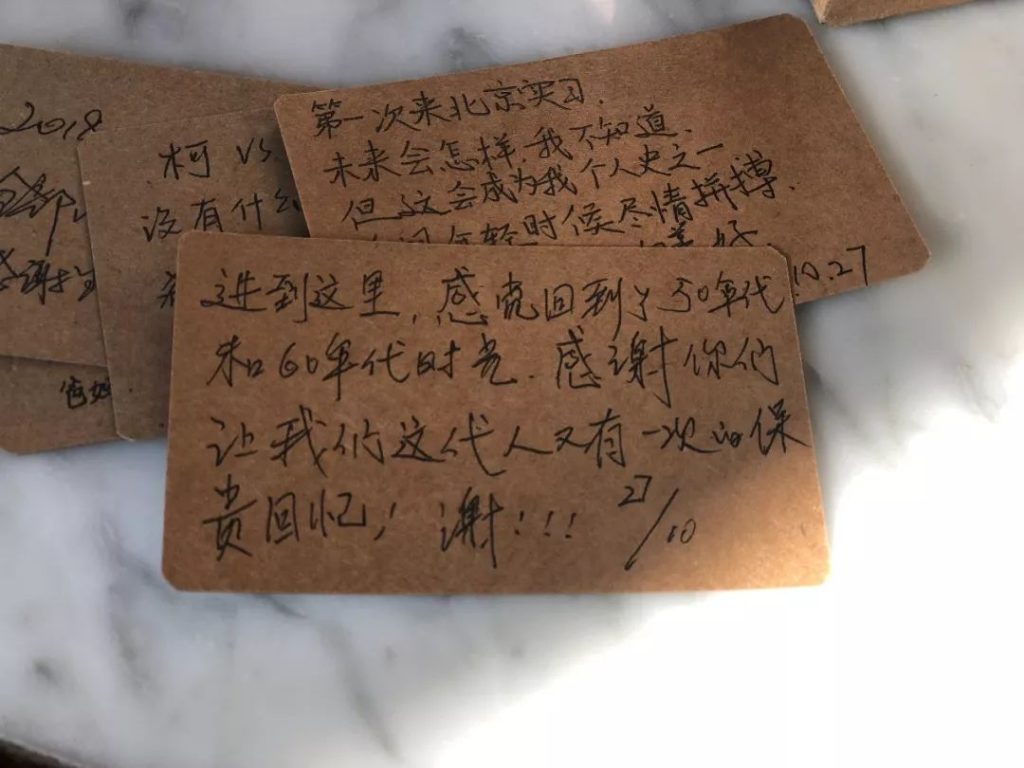 2018
柯 VS
没有什么
第一次来北京实习.
未来会怎样,我不知道.
但这会成为我个人史之一
年轻时候尽情拼搏.
10.27
进到这里,感觉回到了50年代
和60年代时光.感谢你们
让我们这代人又有一次的保
贵回忆!谢!!!
27/10